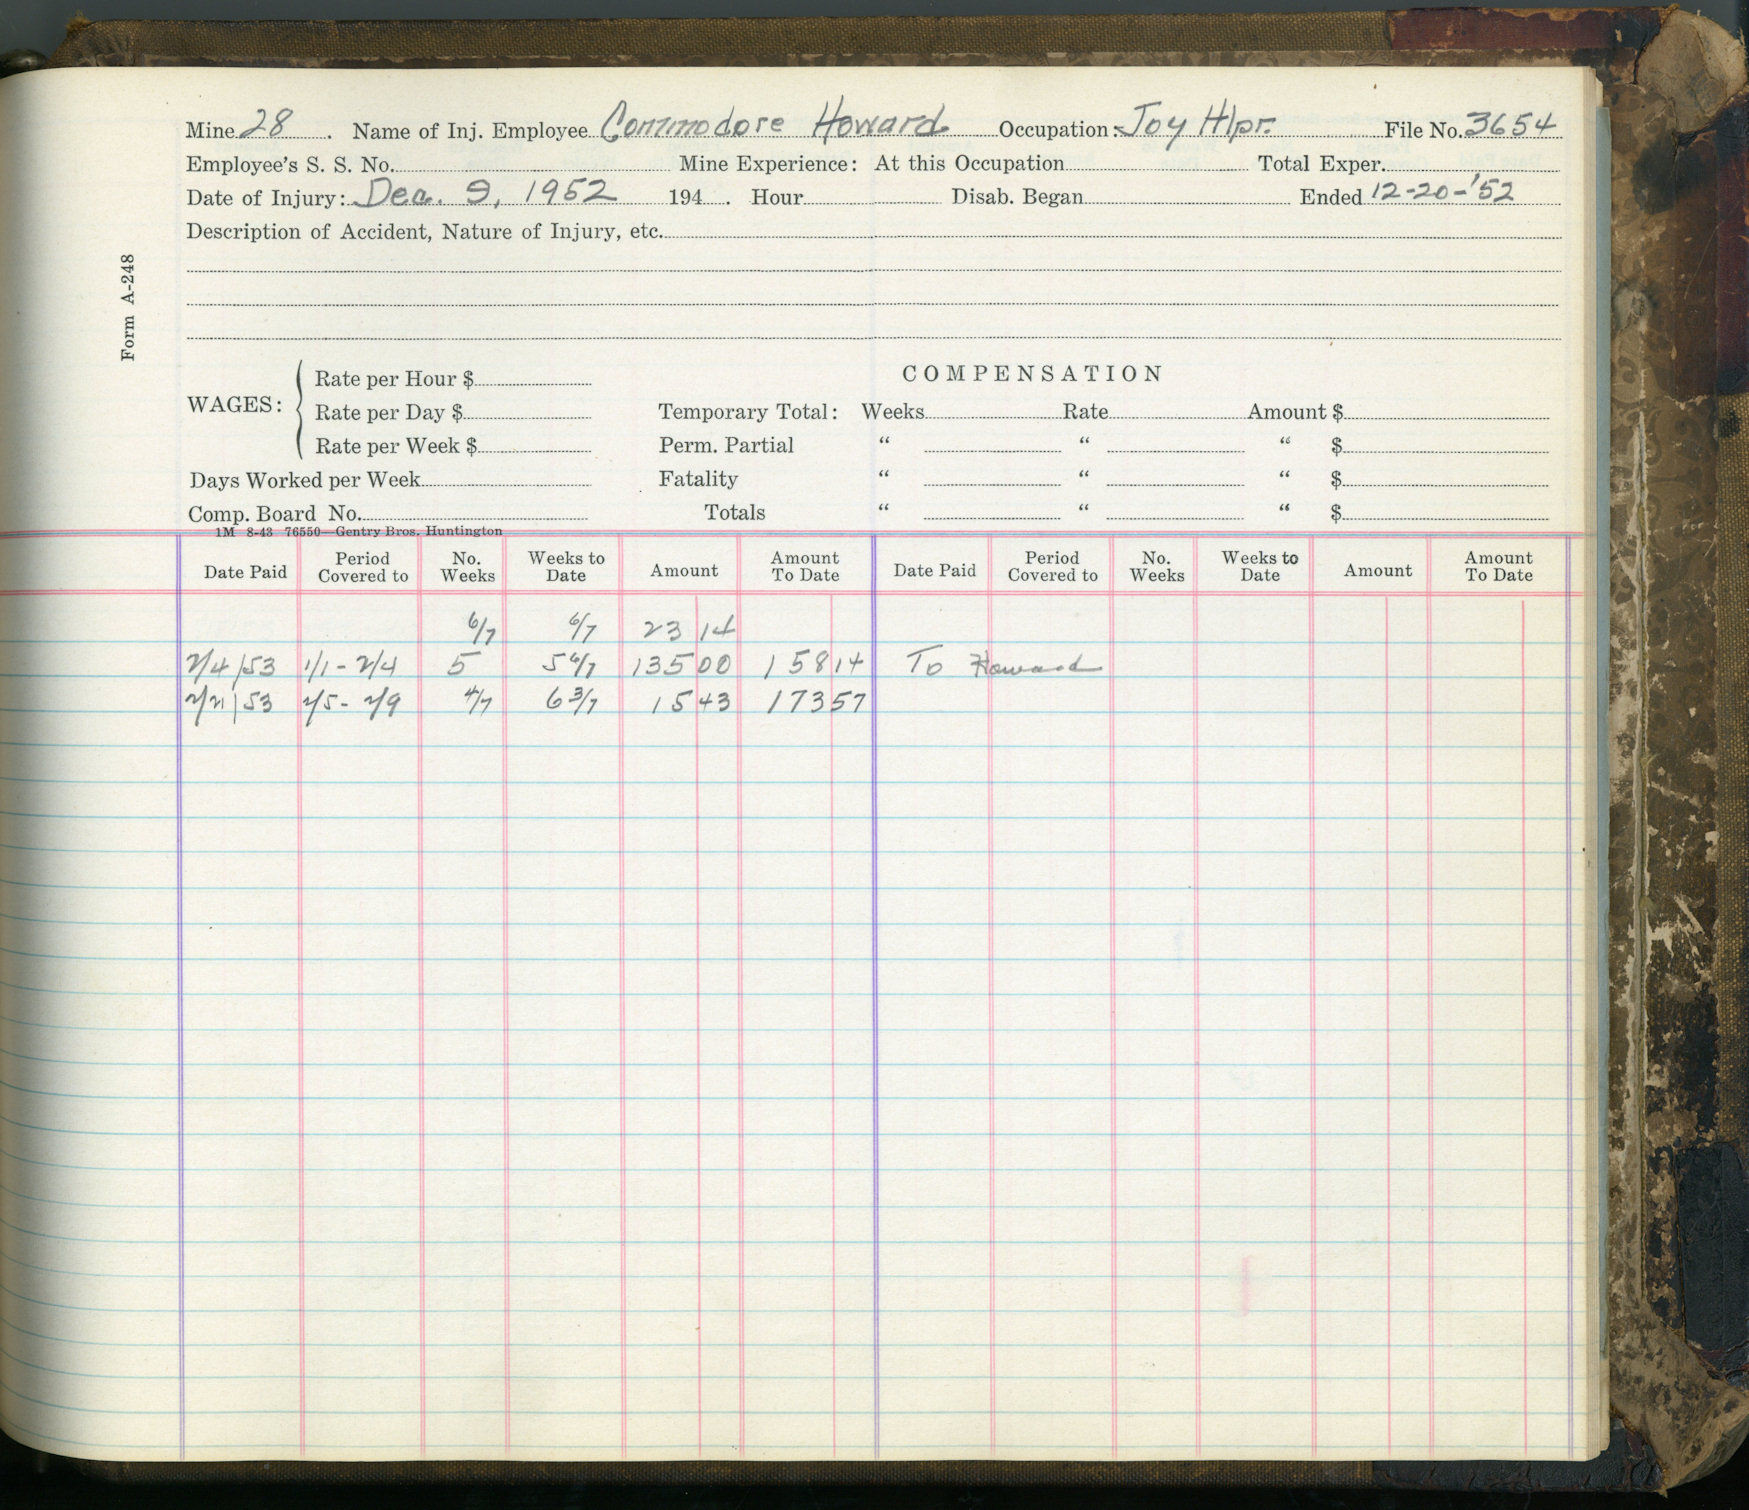 Mine 28 . Name of Inj. Employee Commodore Howard Occupation: Joy Hlpr. File No. 3654
Employee's S. S. No. Mine Experience: At this Occupation Total Exper.
Date of Injury: Dec. 9, 1952 194 . Hour Disab. Began Ended 12-20-'52
Description of Accident, Nature of Injury, etc.
Form A-248
COMPENSATION
WAGES: Rate per Hour $
Rate per Day $ Temporary Total: Weeks Rate Amount $
Rate per Week $ Perm. Partial " " " $
Days Worked per Week Fatality " " " $
Comp. Board No. Totals " " " $
1M 8-43 76550—Gentry Bros. Huntington
Date Paid Period Covered to No. Weeks Weeks to Date Amount Amount To Date Date Paid Period Covered to No. Weeks Weeks to Date Amount Amount To Date
6/7 6/7 23 14
2/4/53 1/1 - 2/4 5 5 6/7 135 00 158 14 To Howard
2/21/53 2/5 - 2/9 4/7 6 3/7 15 43 173 57